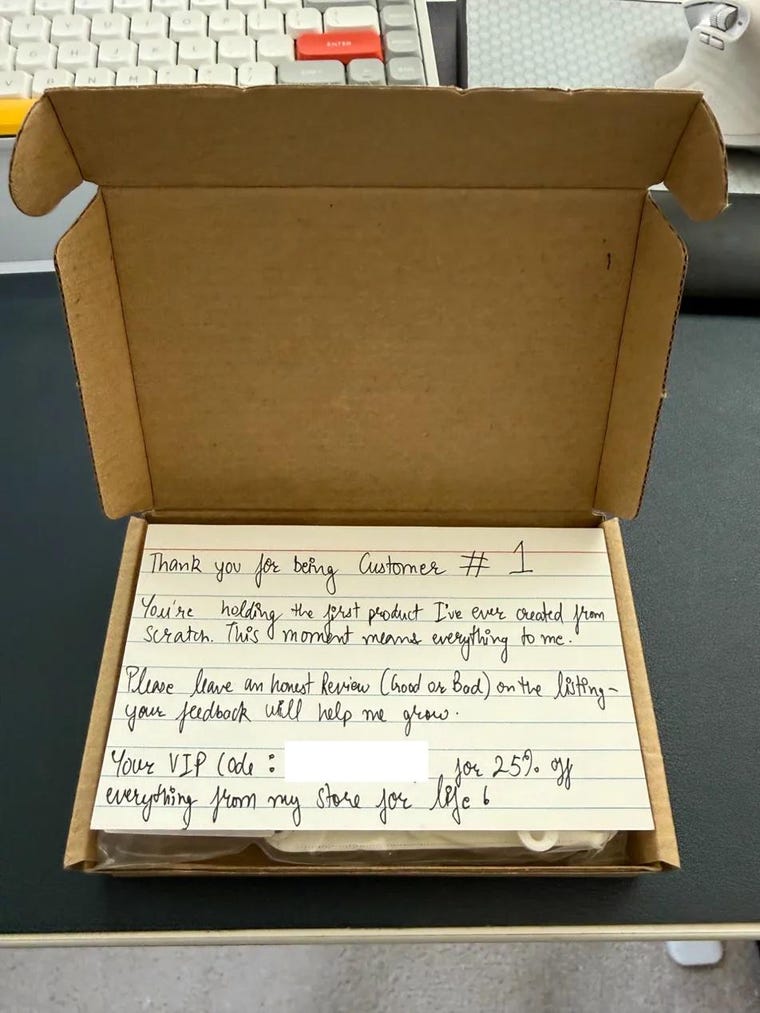 ENTER
Thank you for being Customer # 1
You're holding the first product I've ever created from
scratch. This moment means everything to me.
Please leave an honest Review (Good or Bad) on the listing-
your feedback will help me grow.
Your VIP Code : for 25% off
everything from my store for life !